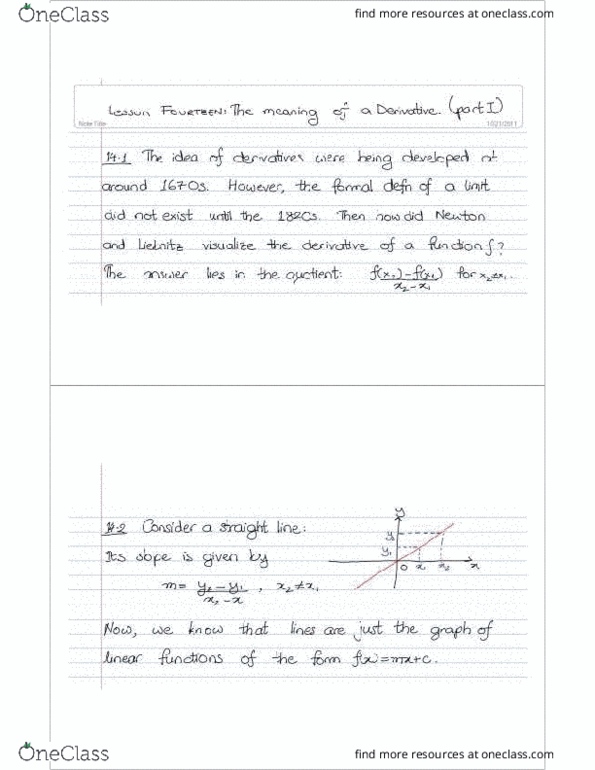 OneClass
find more resources at oneclass.com
LESSON FOURTEEN: The meaning of a Derivative. (part I)
Note Title
10/21/2011
14.1 The idea of derivatives were being developed at
around 1670s. However, the formal defn of a limit
did not exist until the 1820s. Then how did Newton
and Liebnitz visualize the derivative of a function f?
The answer lies in the quotient: f(x₂)-f(x₁)/x₂-x₁ for x₂≠x₁.
14.2 Consider a straight line:
Its slope is given by
m= y₂-y₁/x₂-x , x₂≠x₁
y
y₂
y₁
O x₁ x₂ x
Now, we know that lines are just the graph of
linear functions of the form f(x)=mx+c.
OneClass
find more resources at oneclass.com